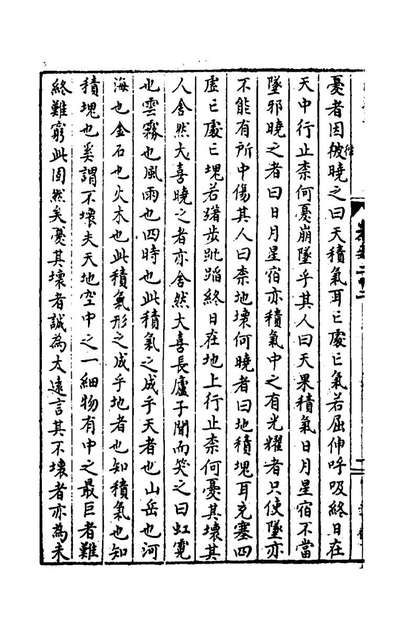 憂者因往曉之曰天積氣耳亡處亡氣若屈伸呼吸終日在
天中行止柰何憂崩墜乎其人曰天果積氣日月星宿不當
墜邪曉之者曰日月星宿亦積氣中之有光耀者只使墜亦
不能有所中傷其人曰柰地壞何曉者曰地積塊耳充塞四
虛亡處亡塊若躇步跐蹈終日在地上行止柰何憂其壞其
人舍然大喜曉之者亦舍然大喜長廬子聞而笑之曰虹霓
也雲霧也風雨也四時也此積氣之成乎天者也山岳也河
海也金石也火木也此積氣形之成乎地者也知積氣也知
積塊也奚謂不壞夫天地空中之一細物有中之最巨者難
終難窮此固然矣憂其壞者誠為太遠言其不壞者亦為未